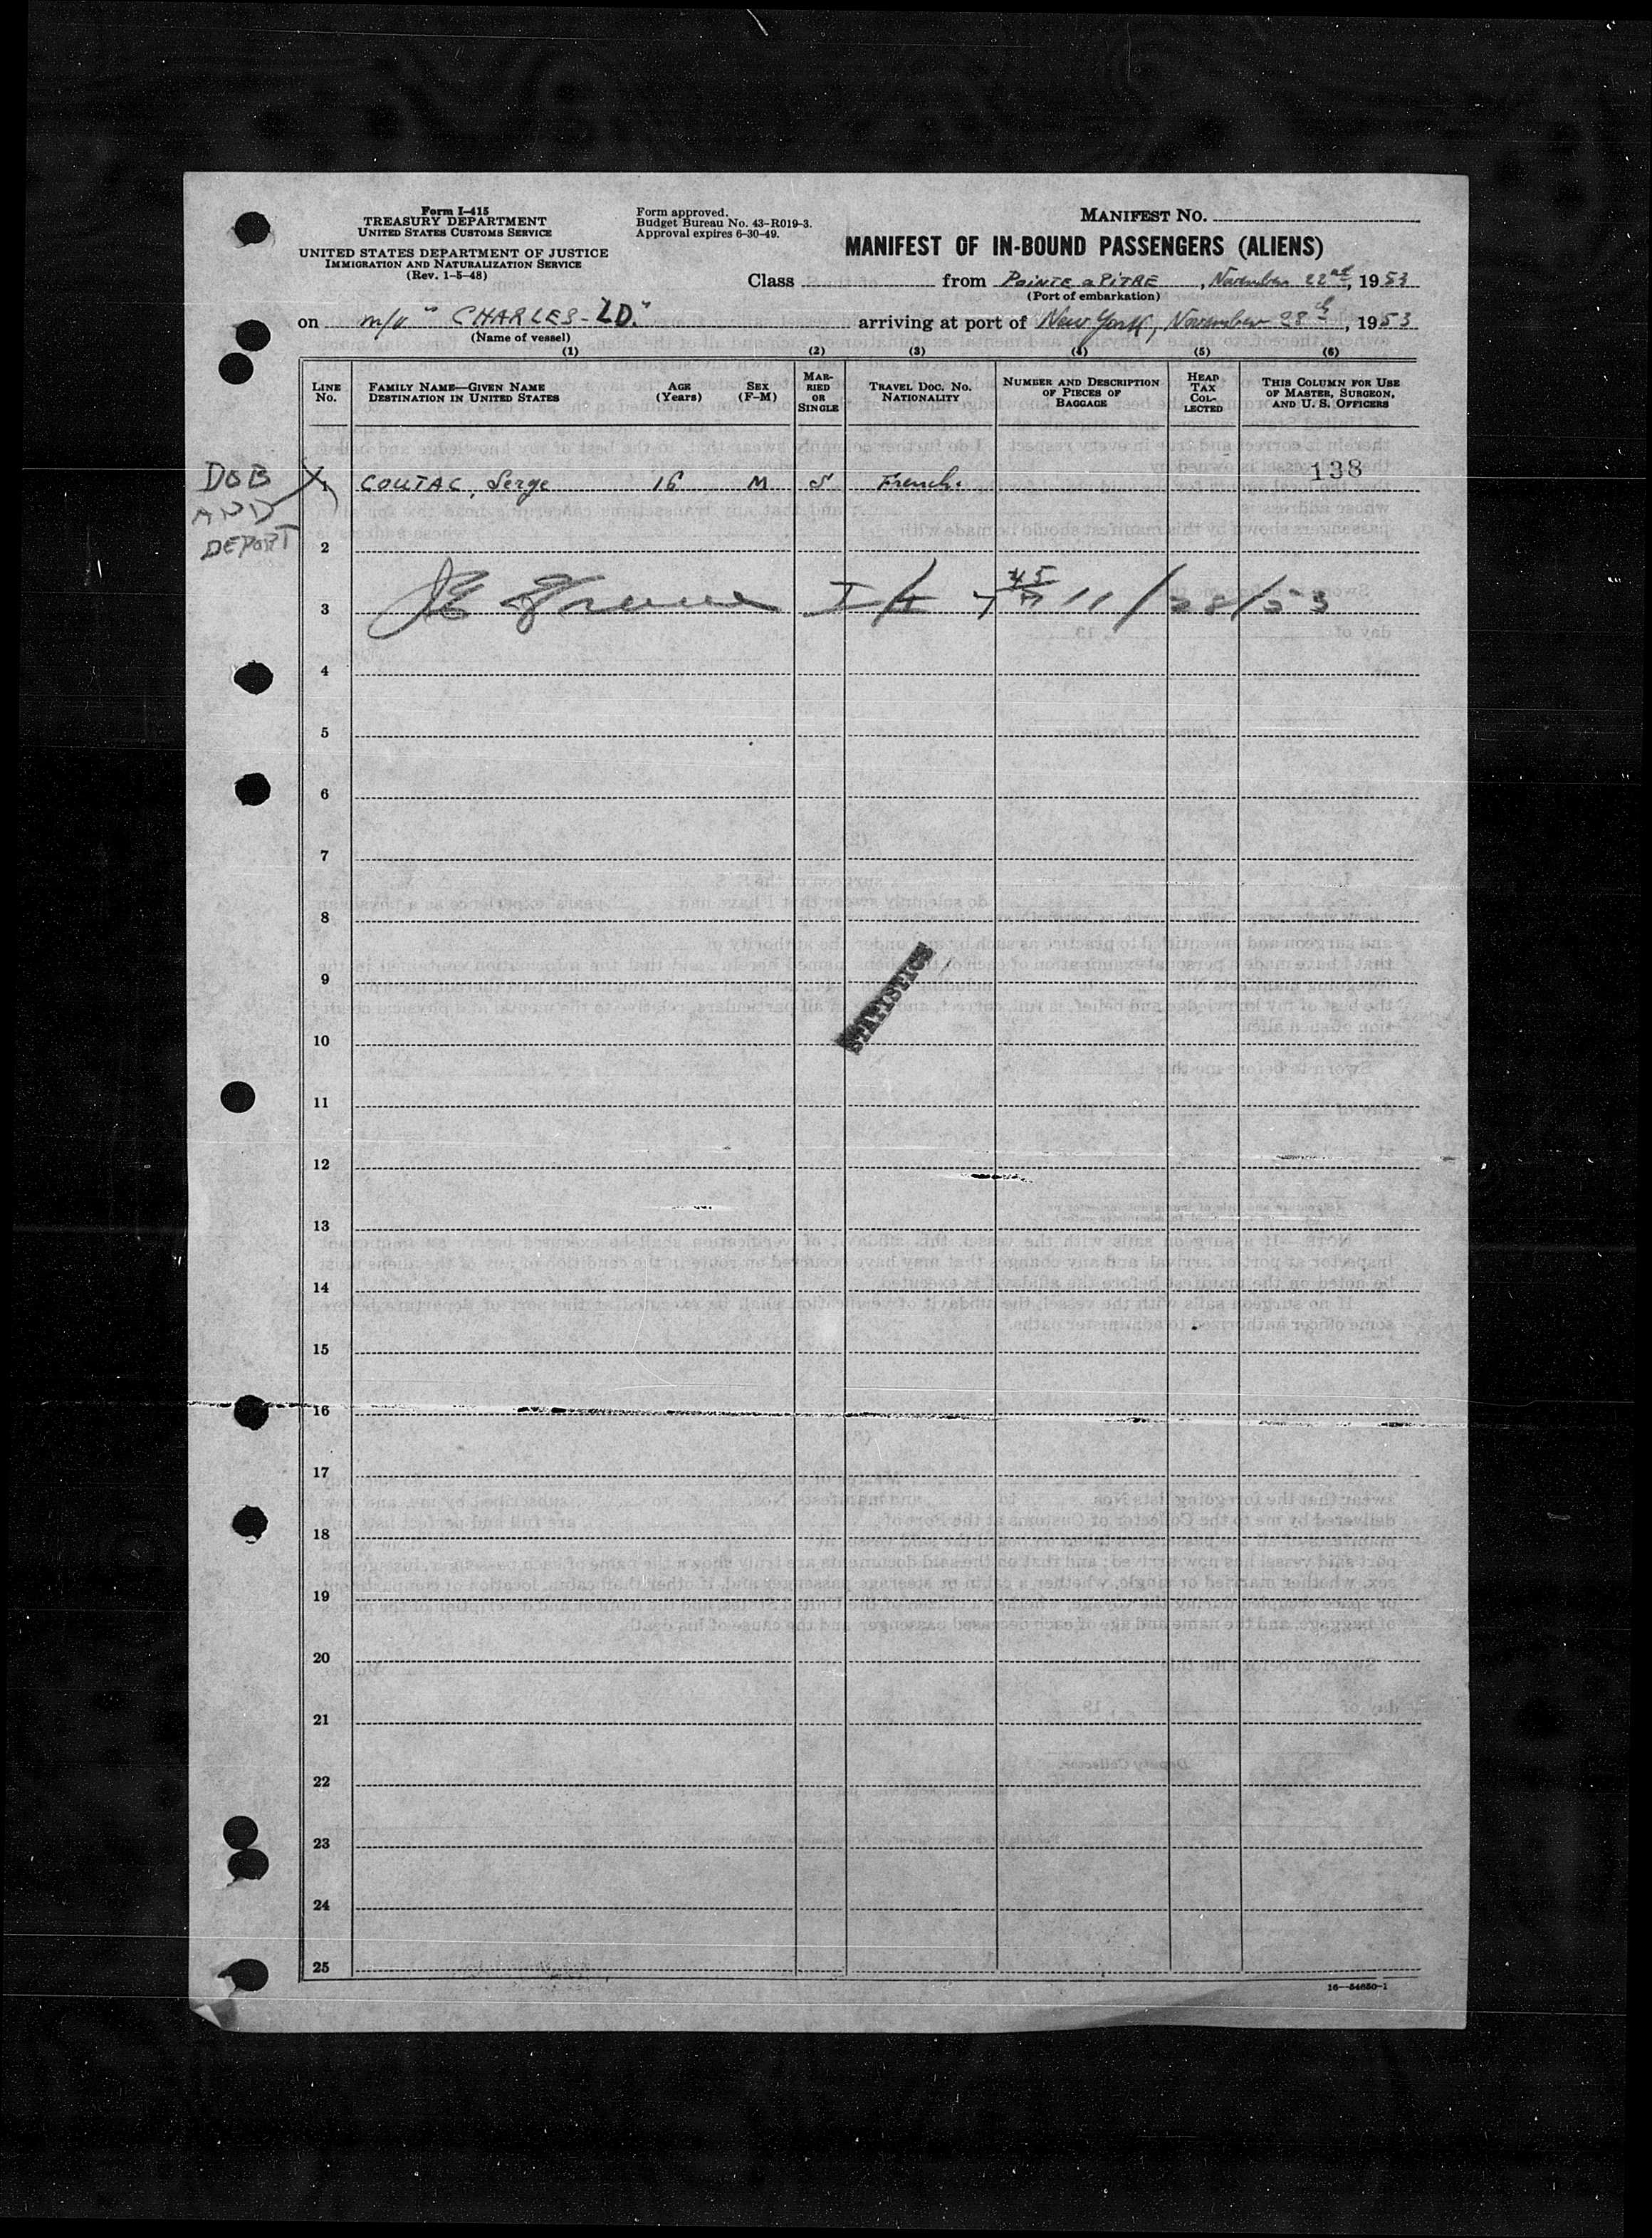 Form I-415
TREASURY DEPARTMENT
UNITED STATES CUSTOMS SERVICE
UNITED STATES DEPARTMENT OF JUSTICE
IMMIGRATION AND NATURALIZATION SERVICE
(Rev. 1-5-48)
Form approved.
Budget Bureau No. 43-R019-3.
Approval expires 6-30-49.
MANIFEST NO.
MANIFEST OF IN-BOUND PASSENGERS (ALIENS)
Class from POINTE a PITRE, November 22nd, 1953
(Port of embarkation)
on m/v "CHARLES-LD." arriving at port of New York, November 28th, 1953
(Name of vessel)
(1) (2) (3) (4) (5) (6)
LINE No. FAMILY NAME—GIVEN NAME DESTINATION IN UNITED STATES AGE (Years) SEX (F-M) MARRIED OR SINGLE TRAVEL DOC. NO. NATIONALITY NUMBER AND DESCRIPTION OF PIECES OF BAGGAGE HEAD TAX COLLECTED THIS COLUMN FOR USE OF MASTER, SURGEON, AND U. S. OFFICERS
DOB AND DEPORT
1 COUTAC, Serge 16 M S French. 138
2
3 11/28/53
4
5
6
7
8
9
STATISTICS
10
11
12
13
14
15
16
17
18
19
20
21
22
23
24
25
16—54650-1